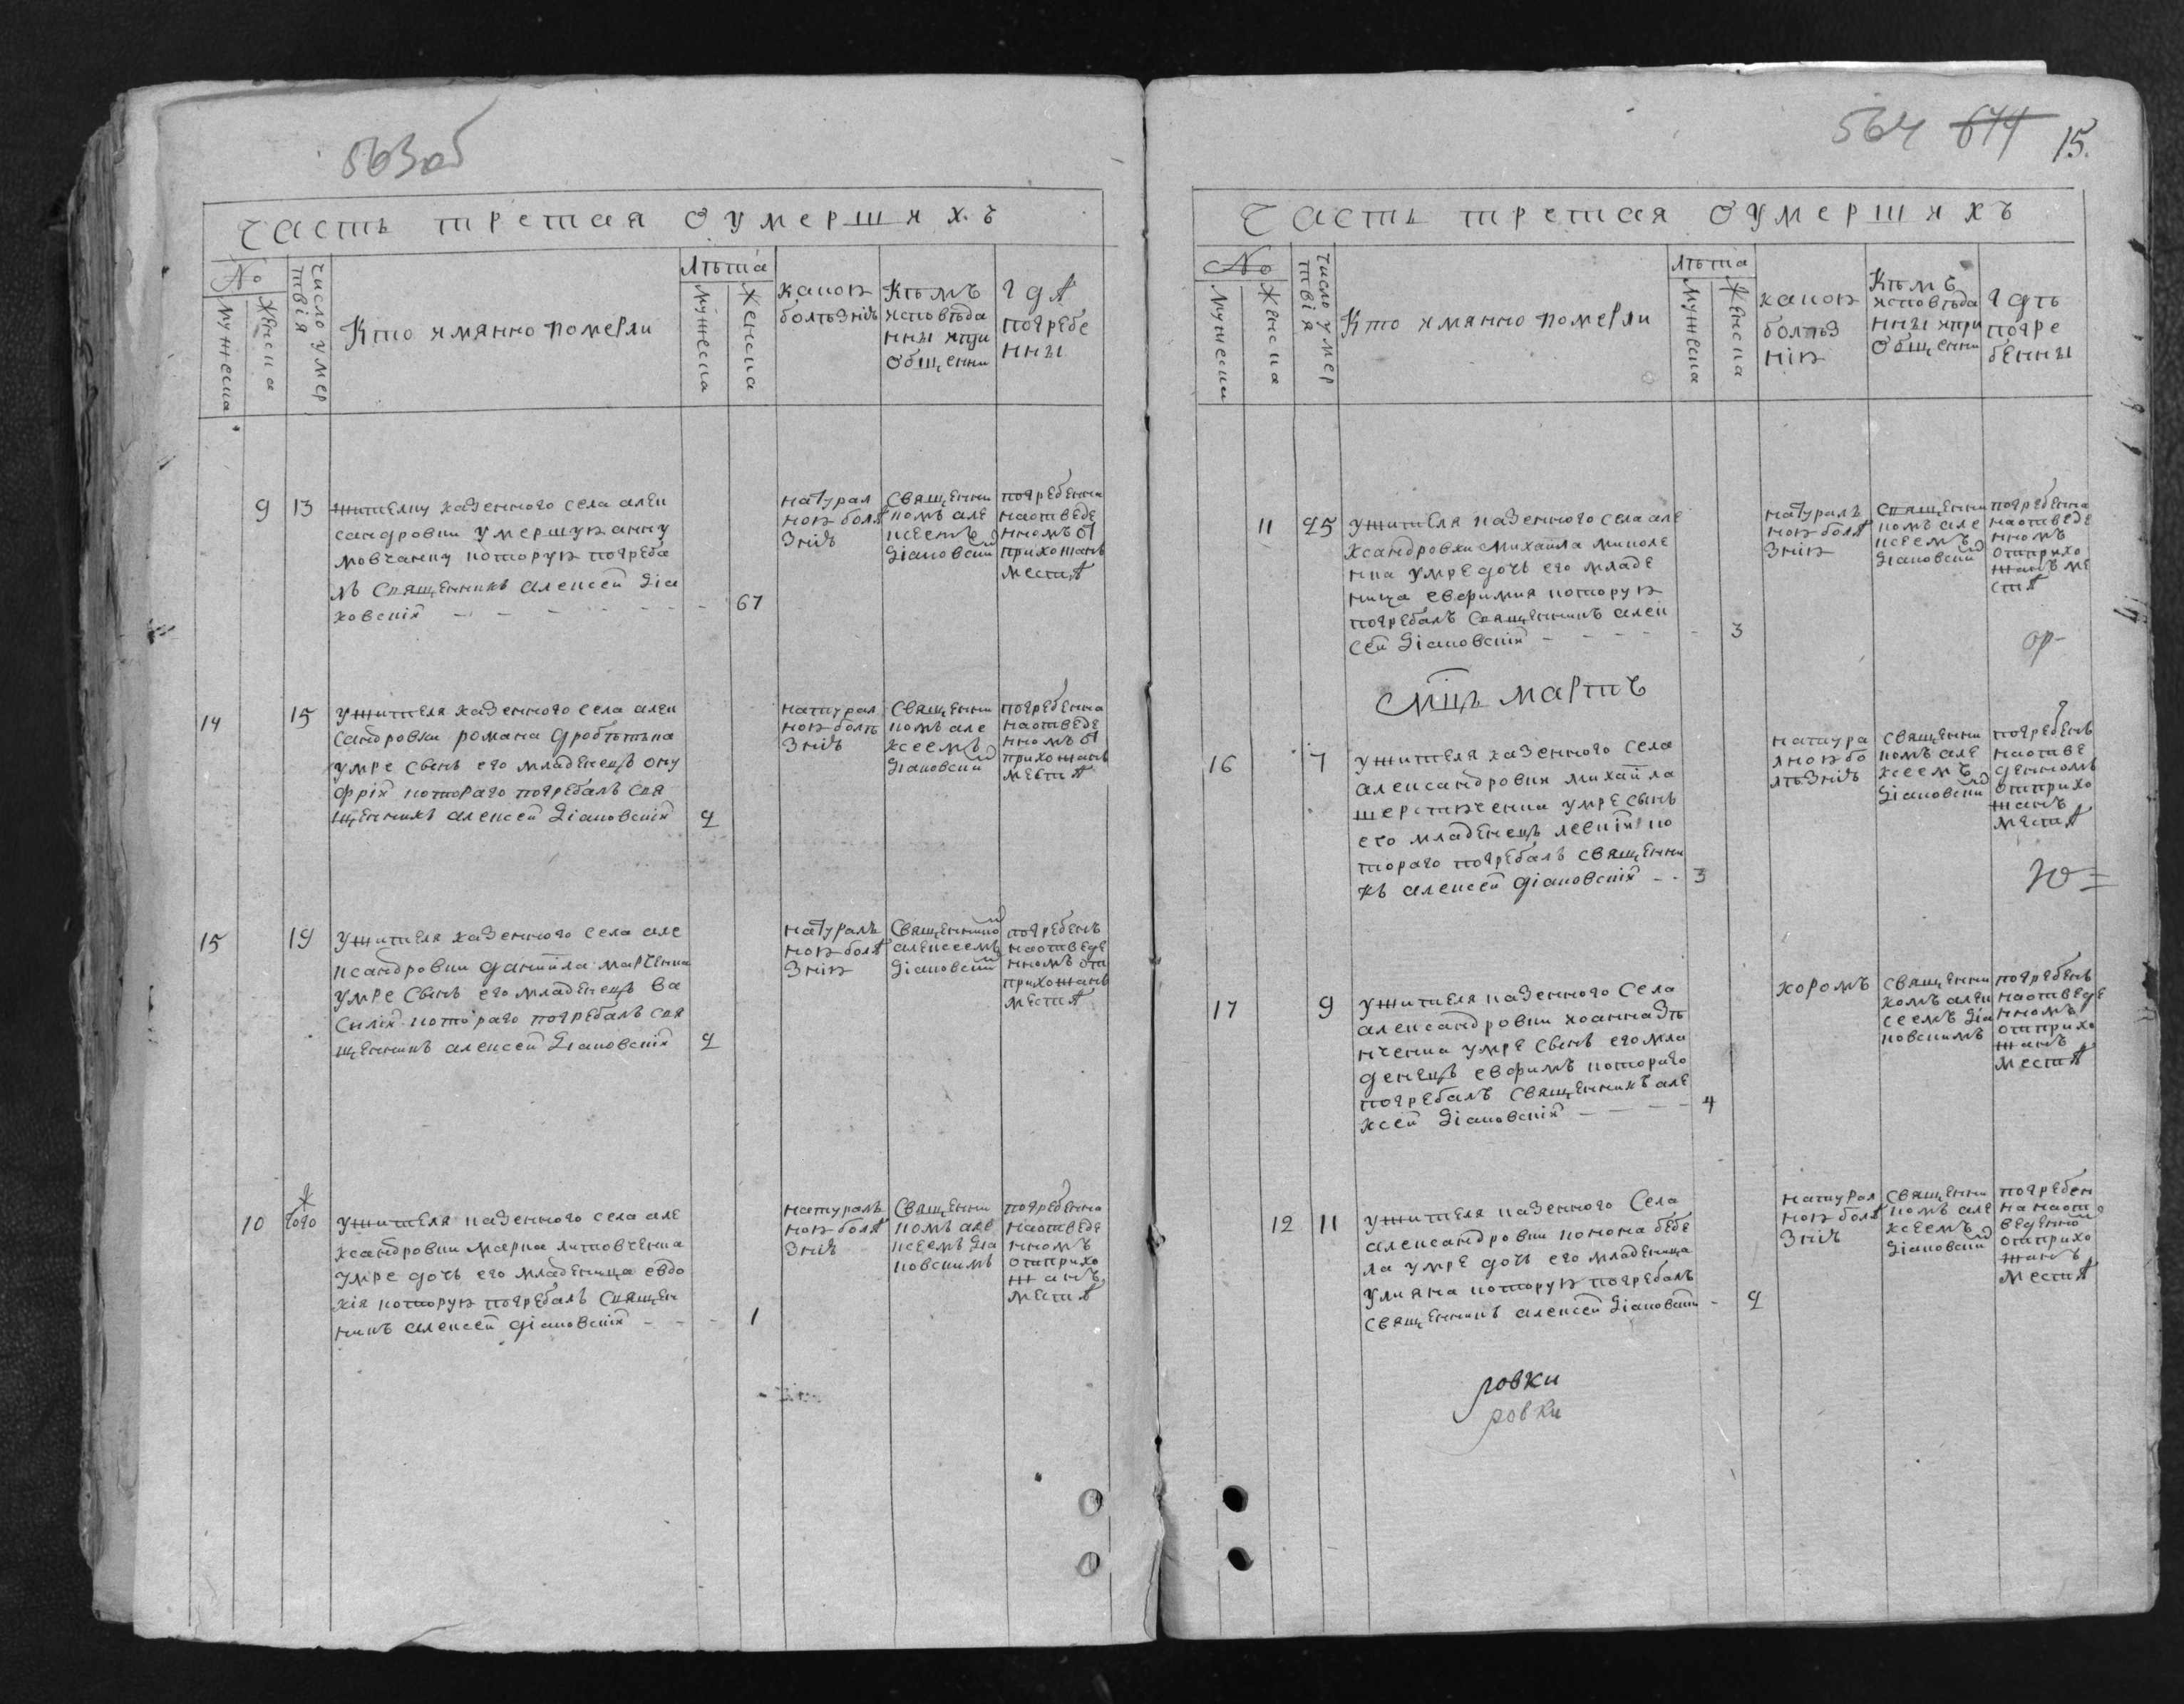 563об
Часть третая оумершихъ
No
мужеска
женска
число умер
твія
Кто имянно померли
лѣта
мужеска
женска
какою
болѣзнію
Кѣмъ
исповѣда
нны и при
общенны
гдѣ
погребе
нны
9 13
жителку казенного села алек
сандровки умершую анну
мовчанку которую погреба
лъ священникъ алексей діа
ковскій - - - - - - 67
натурал
ною болѣ
знію
священни
комъ але
ксеемъ
діаковский
погребенна
наотведе
нномъ от
прихожанъ
местѣ
14 15
Ужителя казенного села алек
сандровки романа дробѣтька
умре сынъ его младенецъ ону
фрій котораго погребалъ свя
щенникъ алексей діаковскій 2
натурал
ною болѣ
знію
священни
комъ але
ксеемъ
діаковский
погребенна
наотведе
нномъ от
прихожанъ
местѣ
15 19
Ужителя казенного села але
ксандровки даниила марченка
умре сынъ его младенецъ ва
силій котораго погребалъ свя
щенникъ алексей діаковскій 2
натуралъ
ною болѣ
знію
Священнико
алексеемъ
діаковский
погребенъ
наотведе
нномъ отъ
прихожанъ
местѣ
10 того ж
Ужителя казенного села але
ксандровки марка литовченка
умре дочь его младеница евдо
кія которую погребалъ священ
никъ алексей діаковскій - - - 1
натуралъ
ною болѣ
знію
Священни
комъ але
ксеемъ діа
ковскимъ
погребенна
наотведе
нномъ
отприхо
жанъ
местѣ
564 674 15.
Часть третая оумершихъ
No
мужески
женска
число умер
твія
Кто имянно померли
лѣта
мужеска
женска
какою
болѣз
нію
Кѣмъ
исповѣда
нны и при
общенни
гдѣ
погре
бенны
11 25
Ужителя казенного села але
ксандровки михаила миколе
нка умре дочь его младе
ница евфимия которую
погребалъ священникъ алек
сей діаковскій - - - - - 3
натуралъ
ною болѣ
знію
священни
комъ але
ксеемъ
діаковский
погребенна
наотведе
нномъ
отприхо
жанъ ме
стѣ
ор-
Мцъ мартъ
16 7
Ужителя казенного села
александровки михаила
шерстюченка умре сынъ
его младенецъ левкій ко
тораго погребалъ священни
къ алексей діаковскій - - 3
натура
лною бо
лѣзнію
священни
комъ але
ксеемъ
діаковский
погребенъ
наотве
денномъ
отприхо
жанъ
местѣ
17 9
Ужителя казенного села
александровки иоанна зѣ
нченка умре сынъ его мла
денецъ евфимъ котораго
погребалъ священникъ але
ксей діаковскій - - - - 4
коромъ
священни
комъ алек
сеемъ діа
ковскимъ
погребенъ
наотведе
нномъ
отприхо
жанъ
местѣ
12 11
Ужителя казенного села
александровки конона бебе
ла умре дочь его младеница
улияна которую погребалъ
священникъ алексей діаковский - 2
натурал
ною болѣ
знію
священни
комъ але
ксеемъ
діаковский
погребен
на наот
веденно
отприхо
жанъ
местѣ
ровки
ровки